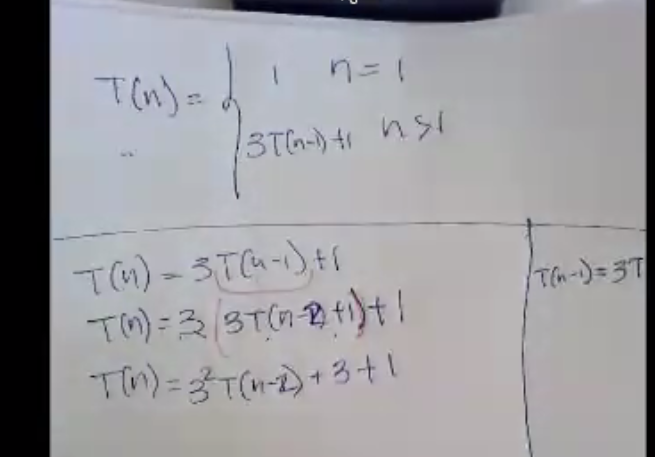 T(n) = { 1 n = 1
3T(n-1)+1 n>1
T(n) = 3T(n-1)+1
T(n) = 3(3T(n-2+1)+1
T(n) = 3²T(n-2)+3+1
T(n-1)=3T